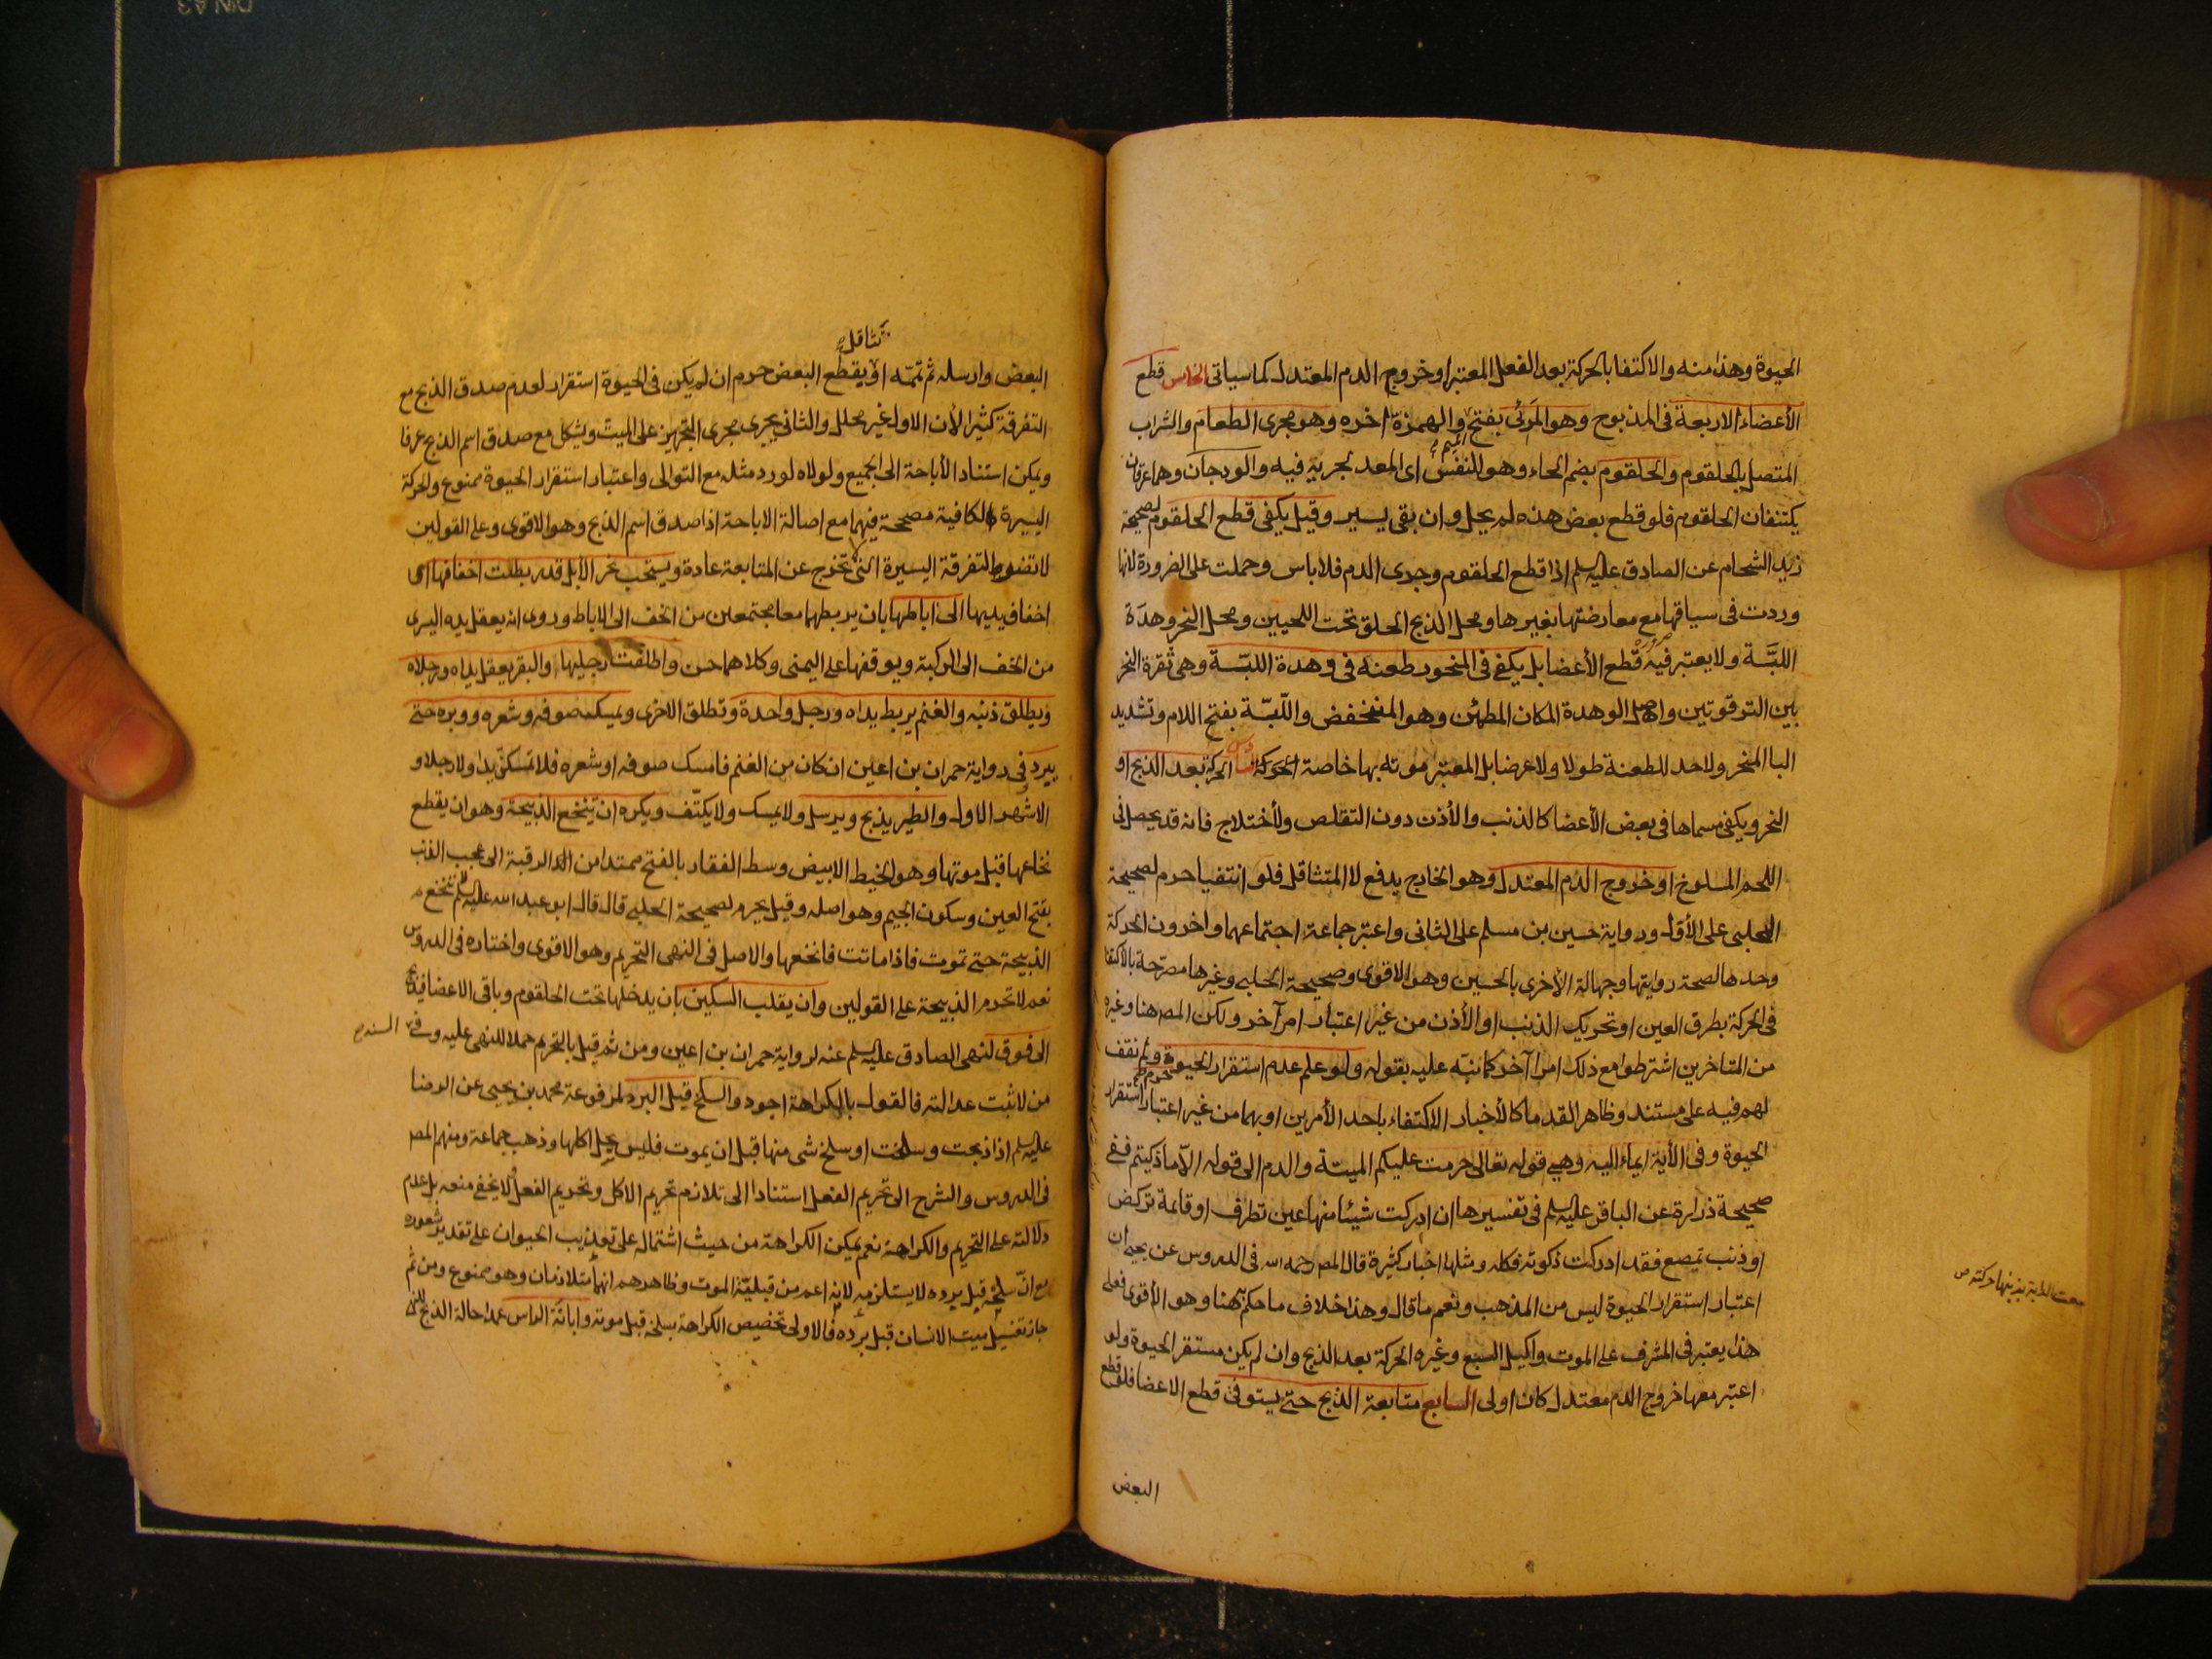 الحيوة وهذا منه والاكتفا بالحركة بعد الفعل المعتبر او خروج الدم المعتدل كما سياتى الخامس قطع
الأعضاء الاربعة فى المذبوح وهو المرئى بفتح الميم والهمزة اخره وهو مجرى الطعام والشراب
المتصل بالحلقوم والحلقوم بضم الحاء وهو للنفس اى المعد لجريه فيه والودجان وهما عرقان
يكتنفان الحلقوم فلو قطع بعض هذه لم يحل وان بقى يسير وقيل يكفى قطع الحلقوم لصحيحة
زيد الشحام عن الصادق عليه السلم اذا قطع الحلقوم وجرى الدم فلا باس وحملت على الضرورة لانها
وردت فى سياقها مع معارضتها بغيرها ومحل الذبح الحلق تحت اللحيين ومحل النحر وهدة
اللبَّة ولا يعتبر فيه قطع الأعضا بل يكفى فى المنحور طعنه فى وهدة اللبّة وهى ثغرة النحر
بين الترقوتين واصل الوهدة المكان المطمئن وهو المنخفض واللّبّة بفتح اللام وتشديد
البا المنحر ولا حد للطعنة طولا ولا عرضا بل المعتبر موته بها خاصة السادس الحركة بعد الذبح او
النحر ويكفى مسماها فى بعض الأعضا كالذنب والأذن دون التقلص ولأختلاج فانه قد يحصل فى
اللحم المسلوخ او خروج الدم المعتدل وهو الخارج بدفع لا المتثاقل فلو انتفيا حرم لصحيحة
الحلبى على الأول ورواية حسين بن مسلم على الثانى واعتبر جماعة اجتماعهما واخرون الحركة
وحدها لصحة روايتها وجهالة الأخرى بالحسين وهو الاقوى وصحيحة الحلبى وغيرها مصرّحة بالاكتفا
فى الحركة بطرف العين او تحريك الذنب او الأذن من غير اعتبار امر آخر ولكن المص هنا وغيره
من المتاخرين اشترطوا مع ذلك امرا آخر كما نبّه عليه بقوله ولو علم عدم استقرار الحيوة حرم ولم نقف
لهم فيه على مستند وظاهر القدما كالأخبار الاكتفاء باحد الأمرين او بهما من غير اعتبار استقرار
الحيوة وفى الأية ايماء اليه وهى قوله تعالى حرمت عليكم الميتة والدم الى قوله الّا ما ذكيتم ففى
صحيحة زرارة عن الباقر عليه السلم فى تفسيرها ان ادركت شيئا منها عين تطرف او قائمة تركض
او ذنب يمصع فقد ادركت ذكوته فكله ومثلها اخبار كثيرة قال المص رحمه الله فى الدروس عن يحيى ان
مصعت الدابة بذنبها حركته ص
اعتبار استقرار الحيوة ليس من المذهب ونعم ما قال وهذا خلاف ما حكم به هنا وهو الأقوى فعلى
هذا يعتبر فى المشرف على الموت واكيل السبع وغيره الحركة بعد الذبح وان لم يكن مستقر الحيوة ولو
اعتبر معها خروج الدم معتدل كان اولى السابع متابعة الذبح حتى يستوفى قطع الاعضا فلو قطع
البعض
تثاقل
البعض وارسله ثم تممّه او يقطع البعض حرم ان لم يكن فى الحيوة استقرار لعدم صدق الذبح مع
التفرقة كثيرا لأن الاول غير محلل والثانى يجرى مجرى التجهيز على الميت ويشكل مع صدق اسم الذبح عرفا
ويمكن استناد الأباحة الى الجميع ولولاه لورد مثله مع التوالى واعتبار استقرار الحيوة ممنوع والحركة
اليسيرة الكافية مصححة فيهما مع اصالة الاباحة اذا صدق اسم الذبح وهو الاقوى وعلى القولين
لا تضر التفرقة اليسيرة التى لا تخرج عن المتابعة عادة ويستحب نحر الأبل قد ربطت اخفافها اى
اخفاف يديها الى اباطها بان يربطهما معا مجتمعين من الخف الى الاباط وروى انه يعقل يده اليسرى
من الخف الى الركبة ويوقفها على اليمنى وكلاهما حسن واطلقت رجليها والبقر يعقل يداه ورجلاه
ويطلق ذنبه والغنم يربط يداه ورجل واحدة وتطلق الاخرى ويمسك صوفه وشعره ووبره حتى
يبرد فى رواية حمران بن اعين ان كان من الغنم فامسك صوفه او شعره فلا تمسكنّ يدا ولا رجلا و
الاشهر الاول والطير يذبح ويرسل ولا يمسك ولا يكتّف ويكره ان تنخع الذبيحة وهو ان يقطع
نخاعها قبل موتها وهو الخيط الابيض وسط الفقار بالفتح ممتدا من الرقبة الى عجب الذنب
بفتح العين وسكون الجيم وهو اصله وقيل يحرم لصحيحة الحلبى قال قال ابو عبد الله عليه السلم لا تنخع
الذبيحة حتى تموت فاذا ماتت فانخعها والاصل فى النهى التحريم وهو الاقوى واختاره فى الدروس
نعم لا تحرم الذبيحة على القولين وان يقلب السكين بان يدخلها تحت الحلقوم وباقى الاعضا فيذبح
الى فوق لنهى الصادق عليه السلم عنه لرواية حمران بن اعين ومن ثم قيل بالتحريم حملا للنهى عليه وفى السند
من لا تثبت عدالته فالقول بالكراهة اجود والسلخ قبل البرد لمرفوعة محمد بن يحيى عن الرضا
عليه السلم اذا ذبحت وسلخت او سلخ شى منها قبل ان يموت فليس يحل اكلها وذهب جماعة ومنهم المص
فى الدروس والشرح الى تحريم الفعل استنادا الى تلازم تحريم الاكل وتحريم الفعل ولا يخفى منعه بل عدم
دلالته على التحريم والكراهة نعم يمكن الكراهة من حيث اشتماله على تعذيب الحيوان على تقدير شعوره
مع انّ سلخه قبل برده لا يستلزمه لانه اعم من قبليّة الموت وظاهرهم انهما متلازمان وهو ممنوع ومن ثم
جاز تغسيل ميت الانسان قبل برده فالاولى تخصيص الكراهة بسلخه قبل موته وابانة الراس عمدا حالة الذبح للنهى